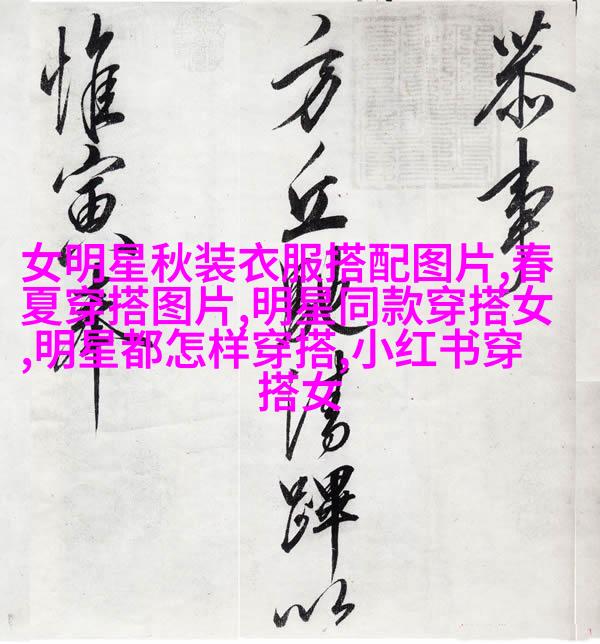 恭事
方丘清蹕以
惟寅奉
女明星秋装衣服搭配图片,春
夏穿搭图片,明星同款穿搭女
,明星都怎样穿搭,小红书穿
搭女